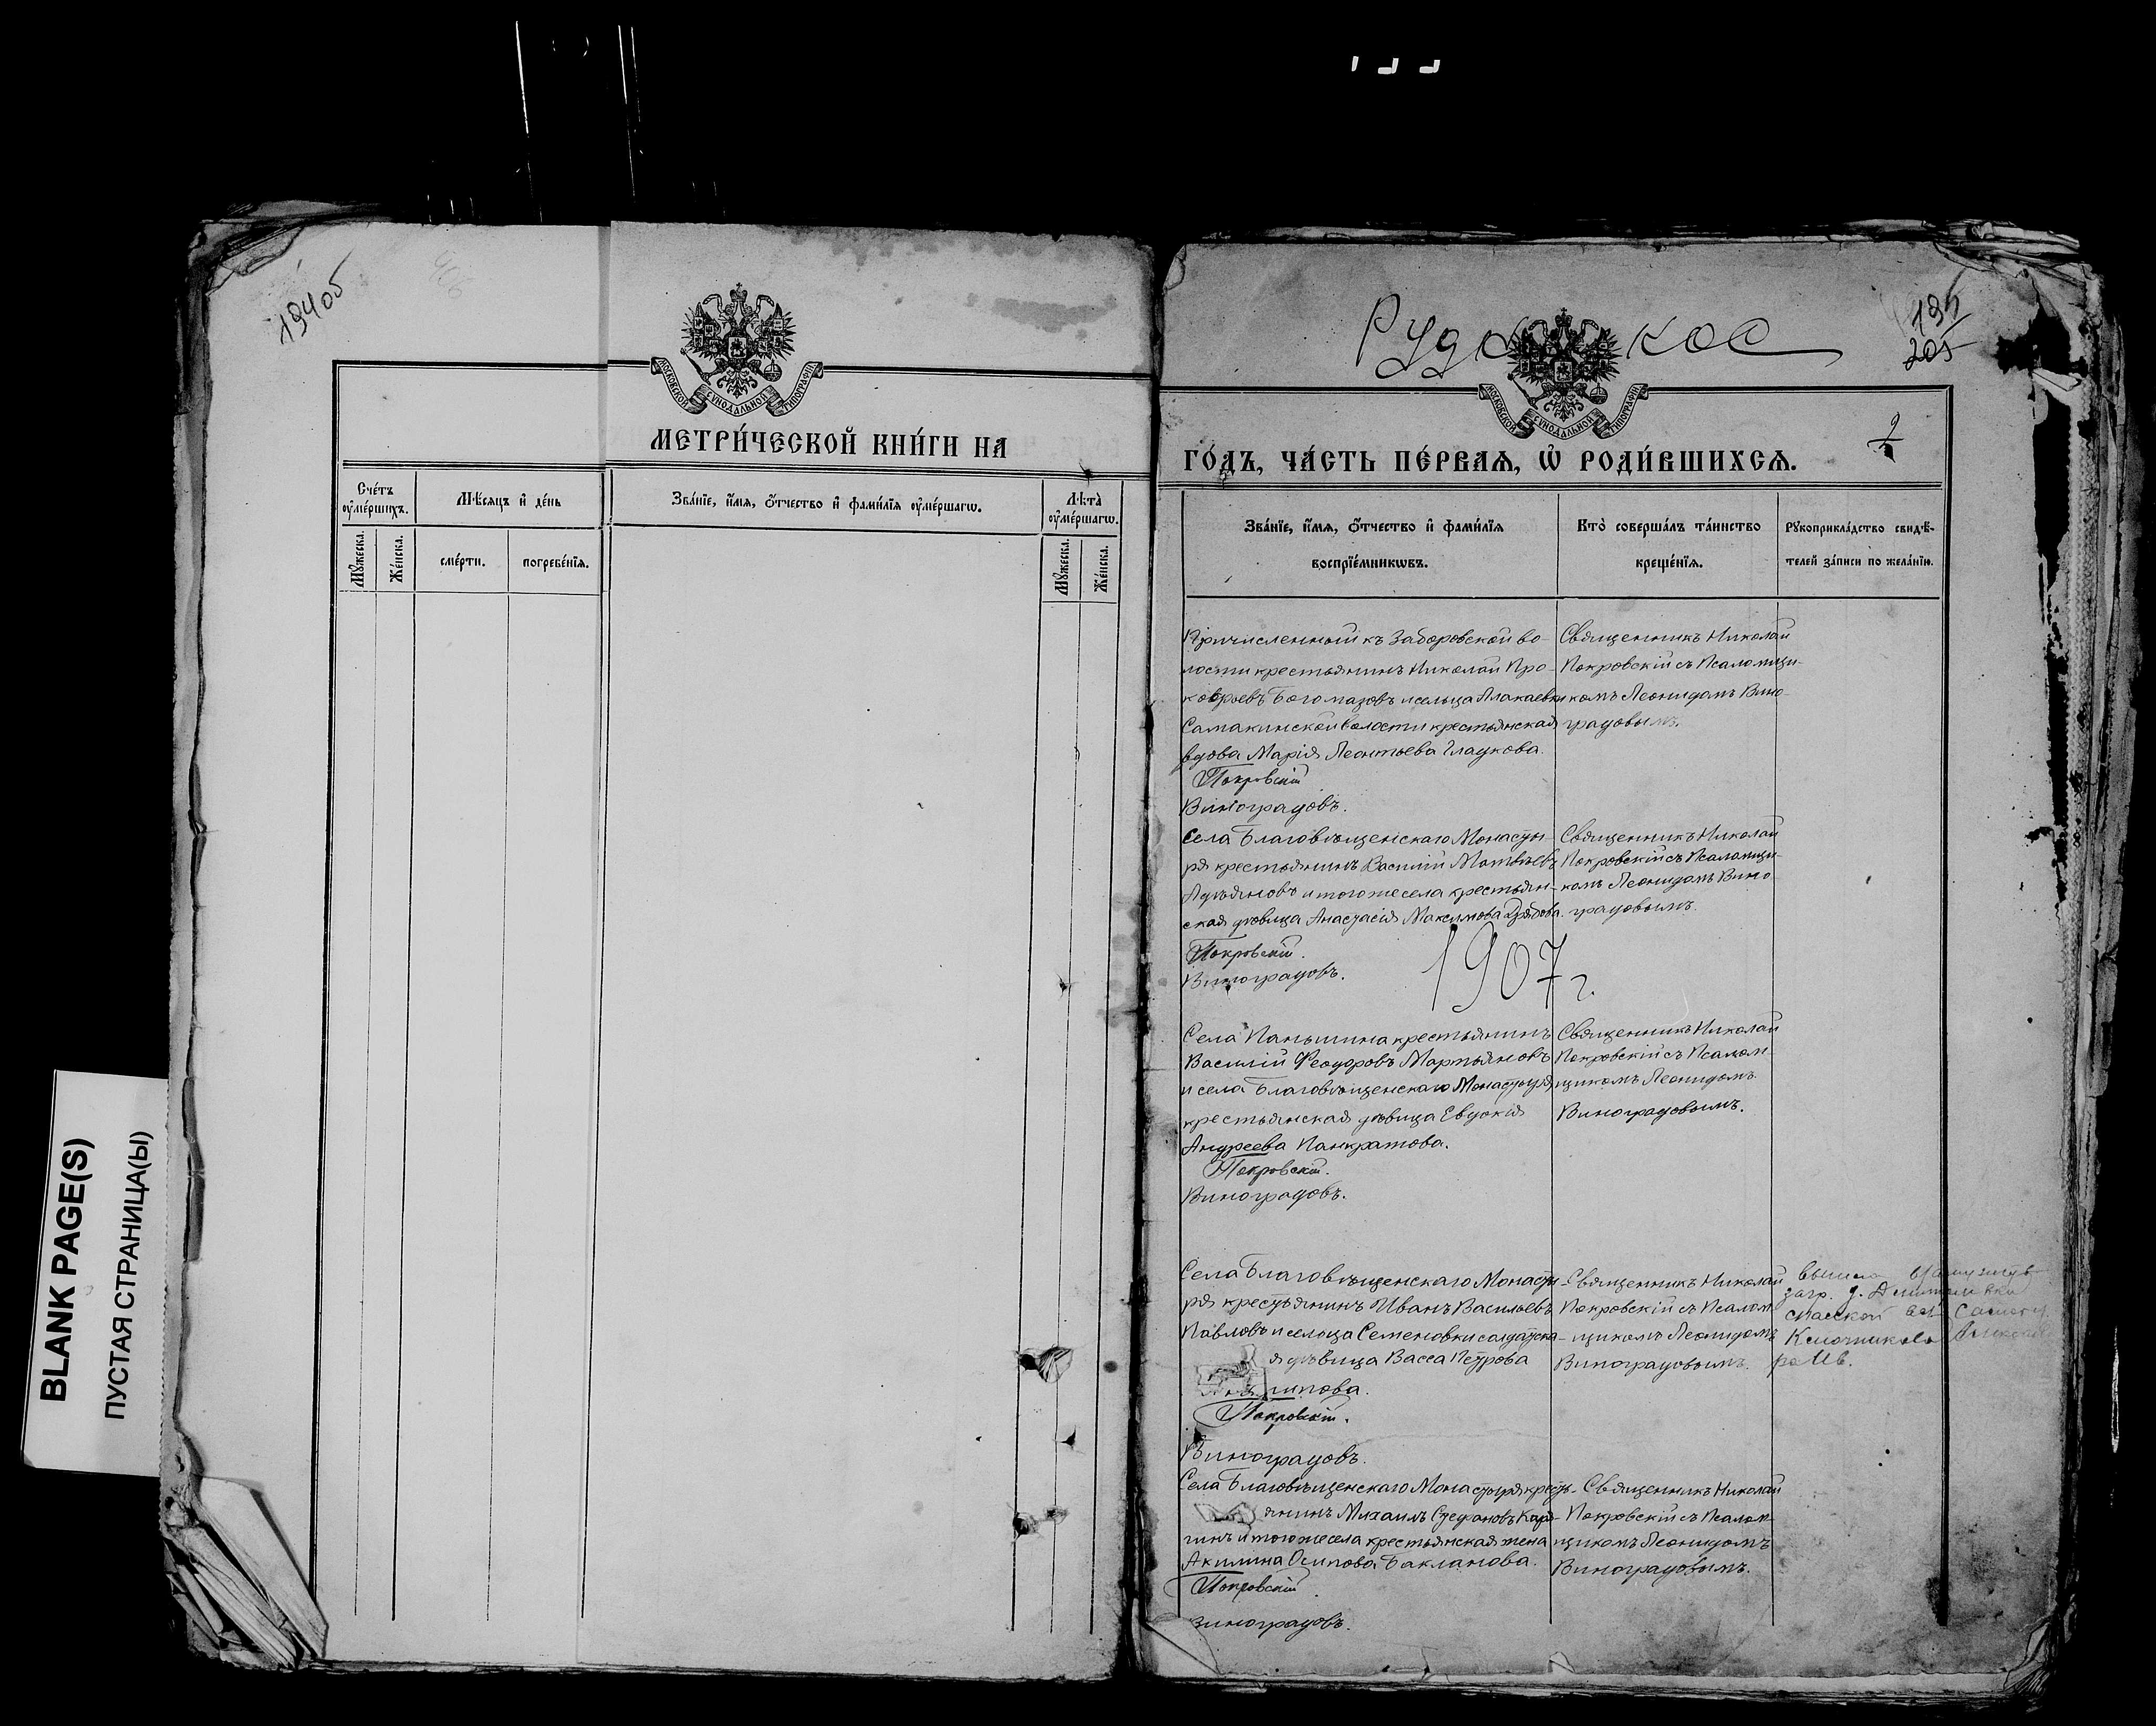 BLANK PAGE(S)
ПУСТАЯ СТРАНИЦА(Ы)
194об
МОСКОВСКОЙ СѴНОДАЛЬНОЙ ТИПОГРАФІИ
МЕТРИ́ЧЕСКОЙ КНИ́ГИ НА
Сче́тъ оумéршихъ.
Мѣ́сяцъ и де́нь
Зва́нїе, и́мя, о́тчество и фами́лїя оумéршагѡ.
Лѣта̀ оумéршагѡ.
Мꙋжеска.
Же́нска.
сме́рти.
погребе́нїя.
Мꙋжеска.
Же́нска.
Рудо кое
195
205
МОСКОВСКОЙ СѴНОДАЛЬНОЙ ТИПОГРАФІИ
2
ГО́ДЪ, ЧА́СТЬ ПЕ́РВАЯ, Ѡ҆ РОДИ́ВШИХСЯ.
Зва́нїе, и́мя, о́тчество и фами́лїя
воспрїе́мникѡвъ.
Кто̀ соверша́лъ та́инство
креще́нїя.
Рꙋкоприкла́дство свидѣ́-
телей за́писи по жела́нїю.
Причисленный къ Заборовской во-
лости крестьянинъ Николай Про-
кофьевъ Богомазовъ и сельца Алакаевки
Самакинской волости крестьянская
вдова Марія Леонтьева Глаукова.
Покровскій
Виноградовъ.
Священникъ Николай
Покровскій съ Псаломщи-
комъ Леонидомъ Вино-
градовымъ.
Села Благовѣщенскаго Монасты-
ря крестьянинъ Василій Матвѣевъ
Лукъяновъ и того же села крестьян-
ская дѣвица Анастасія Максимова
Покровскій.
Виноградовъ.
Священникъ Николай
Покровскій съ Псаломщи-
комъ Леонидомъ Вино-
градовымъ.
1907 г.
Села Паньшина крестьянинъ
Василій Феодоровъ Мартьяновъ
и села Благовѣщенскаго Монастыря
крестьянская дѣвица Евдокія
Андреева Панкратова.
Покровскій.
Виноградовъ.
Священникъ Николай
Покровскій съ Псалом-
щикомъ Леонидомъ
Виноградовымъ.
Села Благовѣщенскаго Монасты-
ря крестьянинъ Иванъ Васильевъ
Павловъ и сельца Семеновки солдатска-
я дѣвица Васса Петрова
Покровскій.
Виноградовъ.
Священникъ Николай
Покровскій съ Псалом-
щикомъ Леонидомъ
Виноградовымъ.
Села Благовѣщенскаго Монастыря кресть-
янинъ Михаилъ Стефановъ
и того же села крестьянская жена
Акилина Осипова Бакланова.
Покровскій
Виноградовъ.
Священникъ Николай
Покровскій съ Псалом-
щикомъ Леонидомъ
Виноградовымъ.